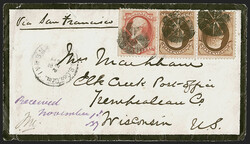 Via San Francisco
Mrs Markham
Elk Creek Post-Office
Trempealeau Co
Wisconsin
U.S.
Received
November